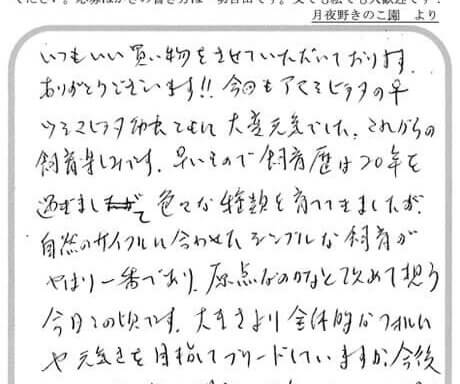 月夜野きのこ園 より
いつもいい買い物をさせていただいております。
ありがとうございます!! 今回もアマミヒラタの♀
ヒラタ幼虫ともに大変元気でした。これからの
飼育楽しみです。早いもので飼育歴は20年を
過ぎまして色々な種類を育ててきましたが、
自然のサイクルに合わせたシンプルな飼育が
やはり一番であり、原点なのかなと改めて想う
今日この頃です。大きさより全体的なフォルム
や元気さを目指してブリードしていますが、今後